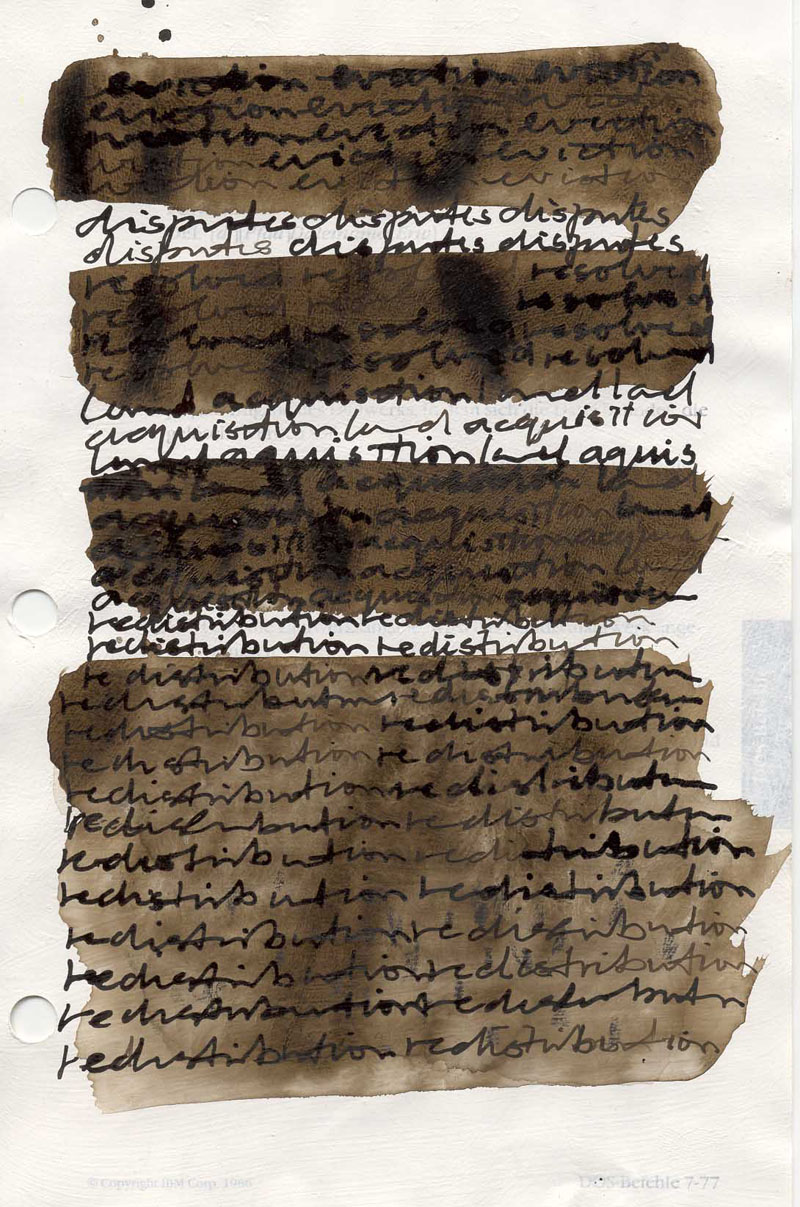 eviction eviction eviction
eviction eviction eviction
eviction eviction eviction
eviction eviction eviction
eviction eviction eviction
disputes disputes disputes
disputes disputes disputes
resolved re resolved
resolved resolved
resolved resolved resolved
resolved resolved resolved
land acquisition land lad
acquisition land acquisition
land aquisition land aquis
ition land acquisition land
acquisition acquisition land
acquisition acquisition acquis
acquisition acquisition land
acquisition acquisition acquisition
redistribution redistribution
redistribution redistribution
redistribution redistribution
redistribution redistribution
redistribution redistribution
redistribution redistribution
redistribution redistribution
redistribution redistribution
redistribution redistribution
redistribution redistribution
redistribution redistribution
redistribution redistribution
redistribution redistribution
redistribution redistribution
© Copyright IBM Corp. 1986 DOS-Befehle 7-77